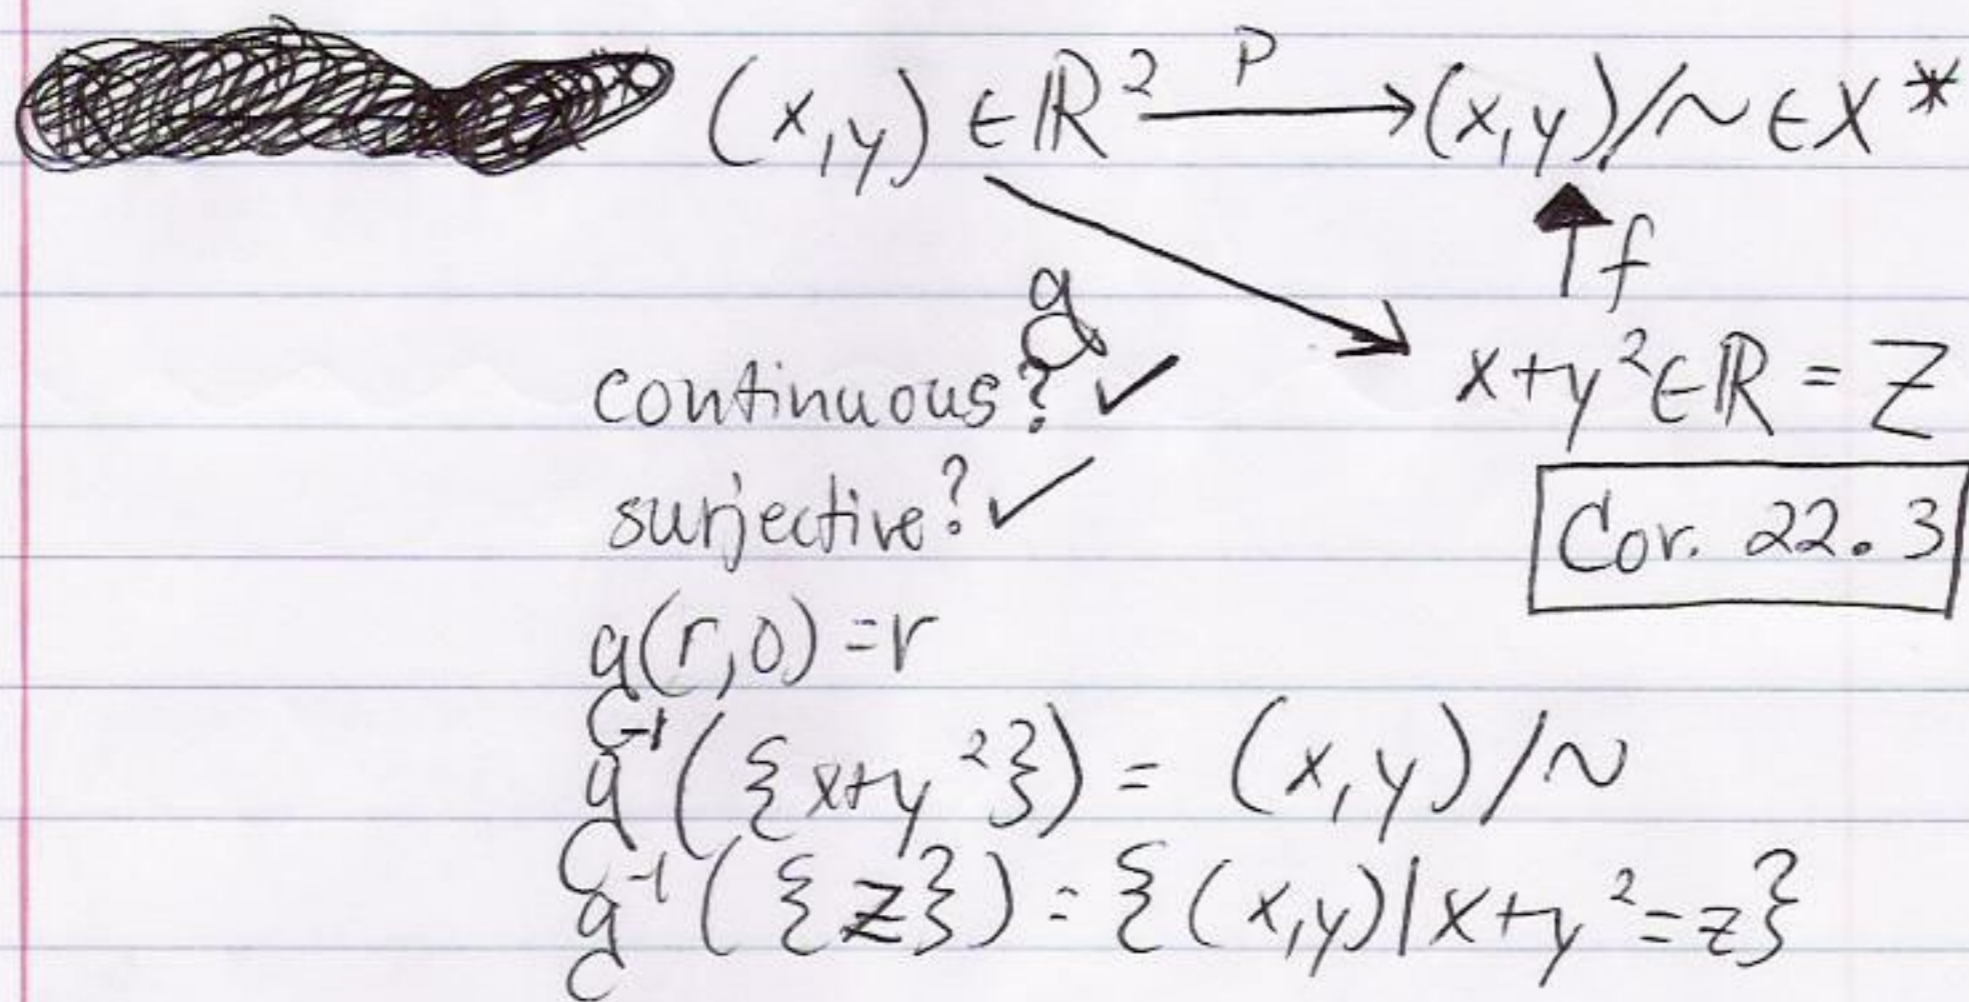 (x,y) ∈ ℝ² P (x,y)/~ ∈ X*
f
g
continuous? ✓
x+y² ∈ ℝ = Z
surjective? ✓
Cor. 22.3
g(r,0) = r
g⁻¹({x+y²}) = (x,y)/~
g⁻¹({z}) = {(x,y) | x+y² = z}